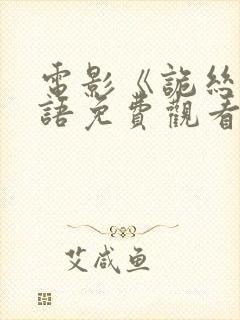 電影《詭絲
語免費觀看
艾咸鱼